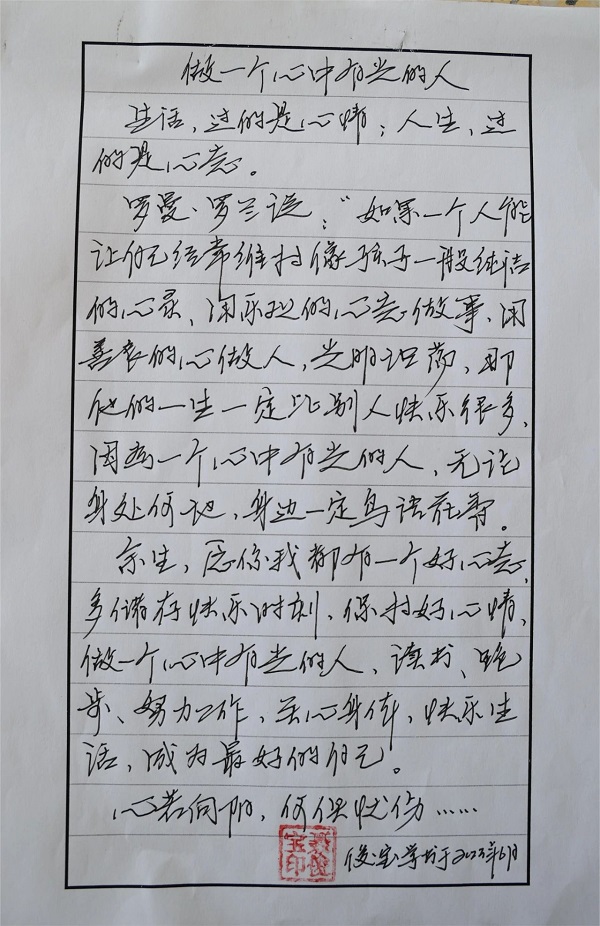 做一个心中有光的人
生活，过的是心情；人生，过
的是心态。
罗曼·罗兰说："如果一个人能
让自己经常维持像孩子一般纯洁
的心灵、用乐观的心态做事、用
善良的心做人，光明坦荡，那
他的一生一定比别人快乐很多，
因为一个心中有光的人，无论
身处何地，身边一定鸟语花香。
余生，愿你我都有一个好心态，
多储存快乐时刻，保持好心情，
做一个心中有光的人，读书、跑
步、努力工作，关心身体，快乐生
活，成为最好的自己。
心若向阳，何惧忧伤……
俊宝学书于2023年6月